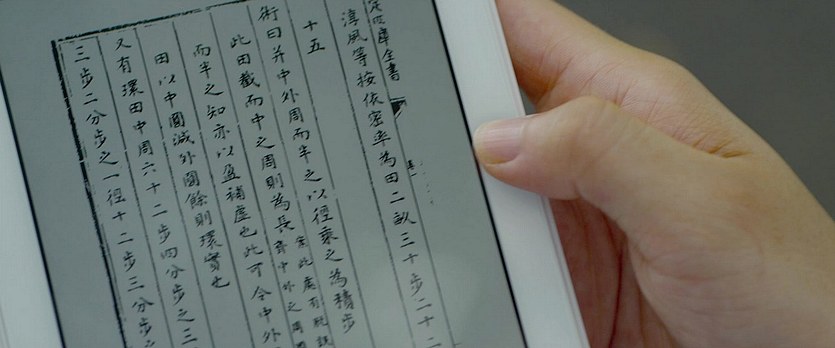 定四庫全書
淳風等按依密率為田二畝三十步二十二
十五
術曰并中外周而半之以徑乘之為積步
此田截而中之周則為長
案此處有脫誤
并中外之周
而半之知亦以盈補虛也此可令中外
因以中圓減外圓餘則環實也
又有環田中周六十二步四分步之三
三步二分步之一徑十二步三分步